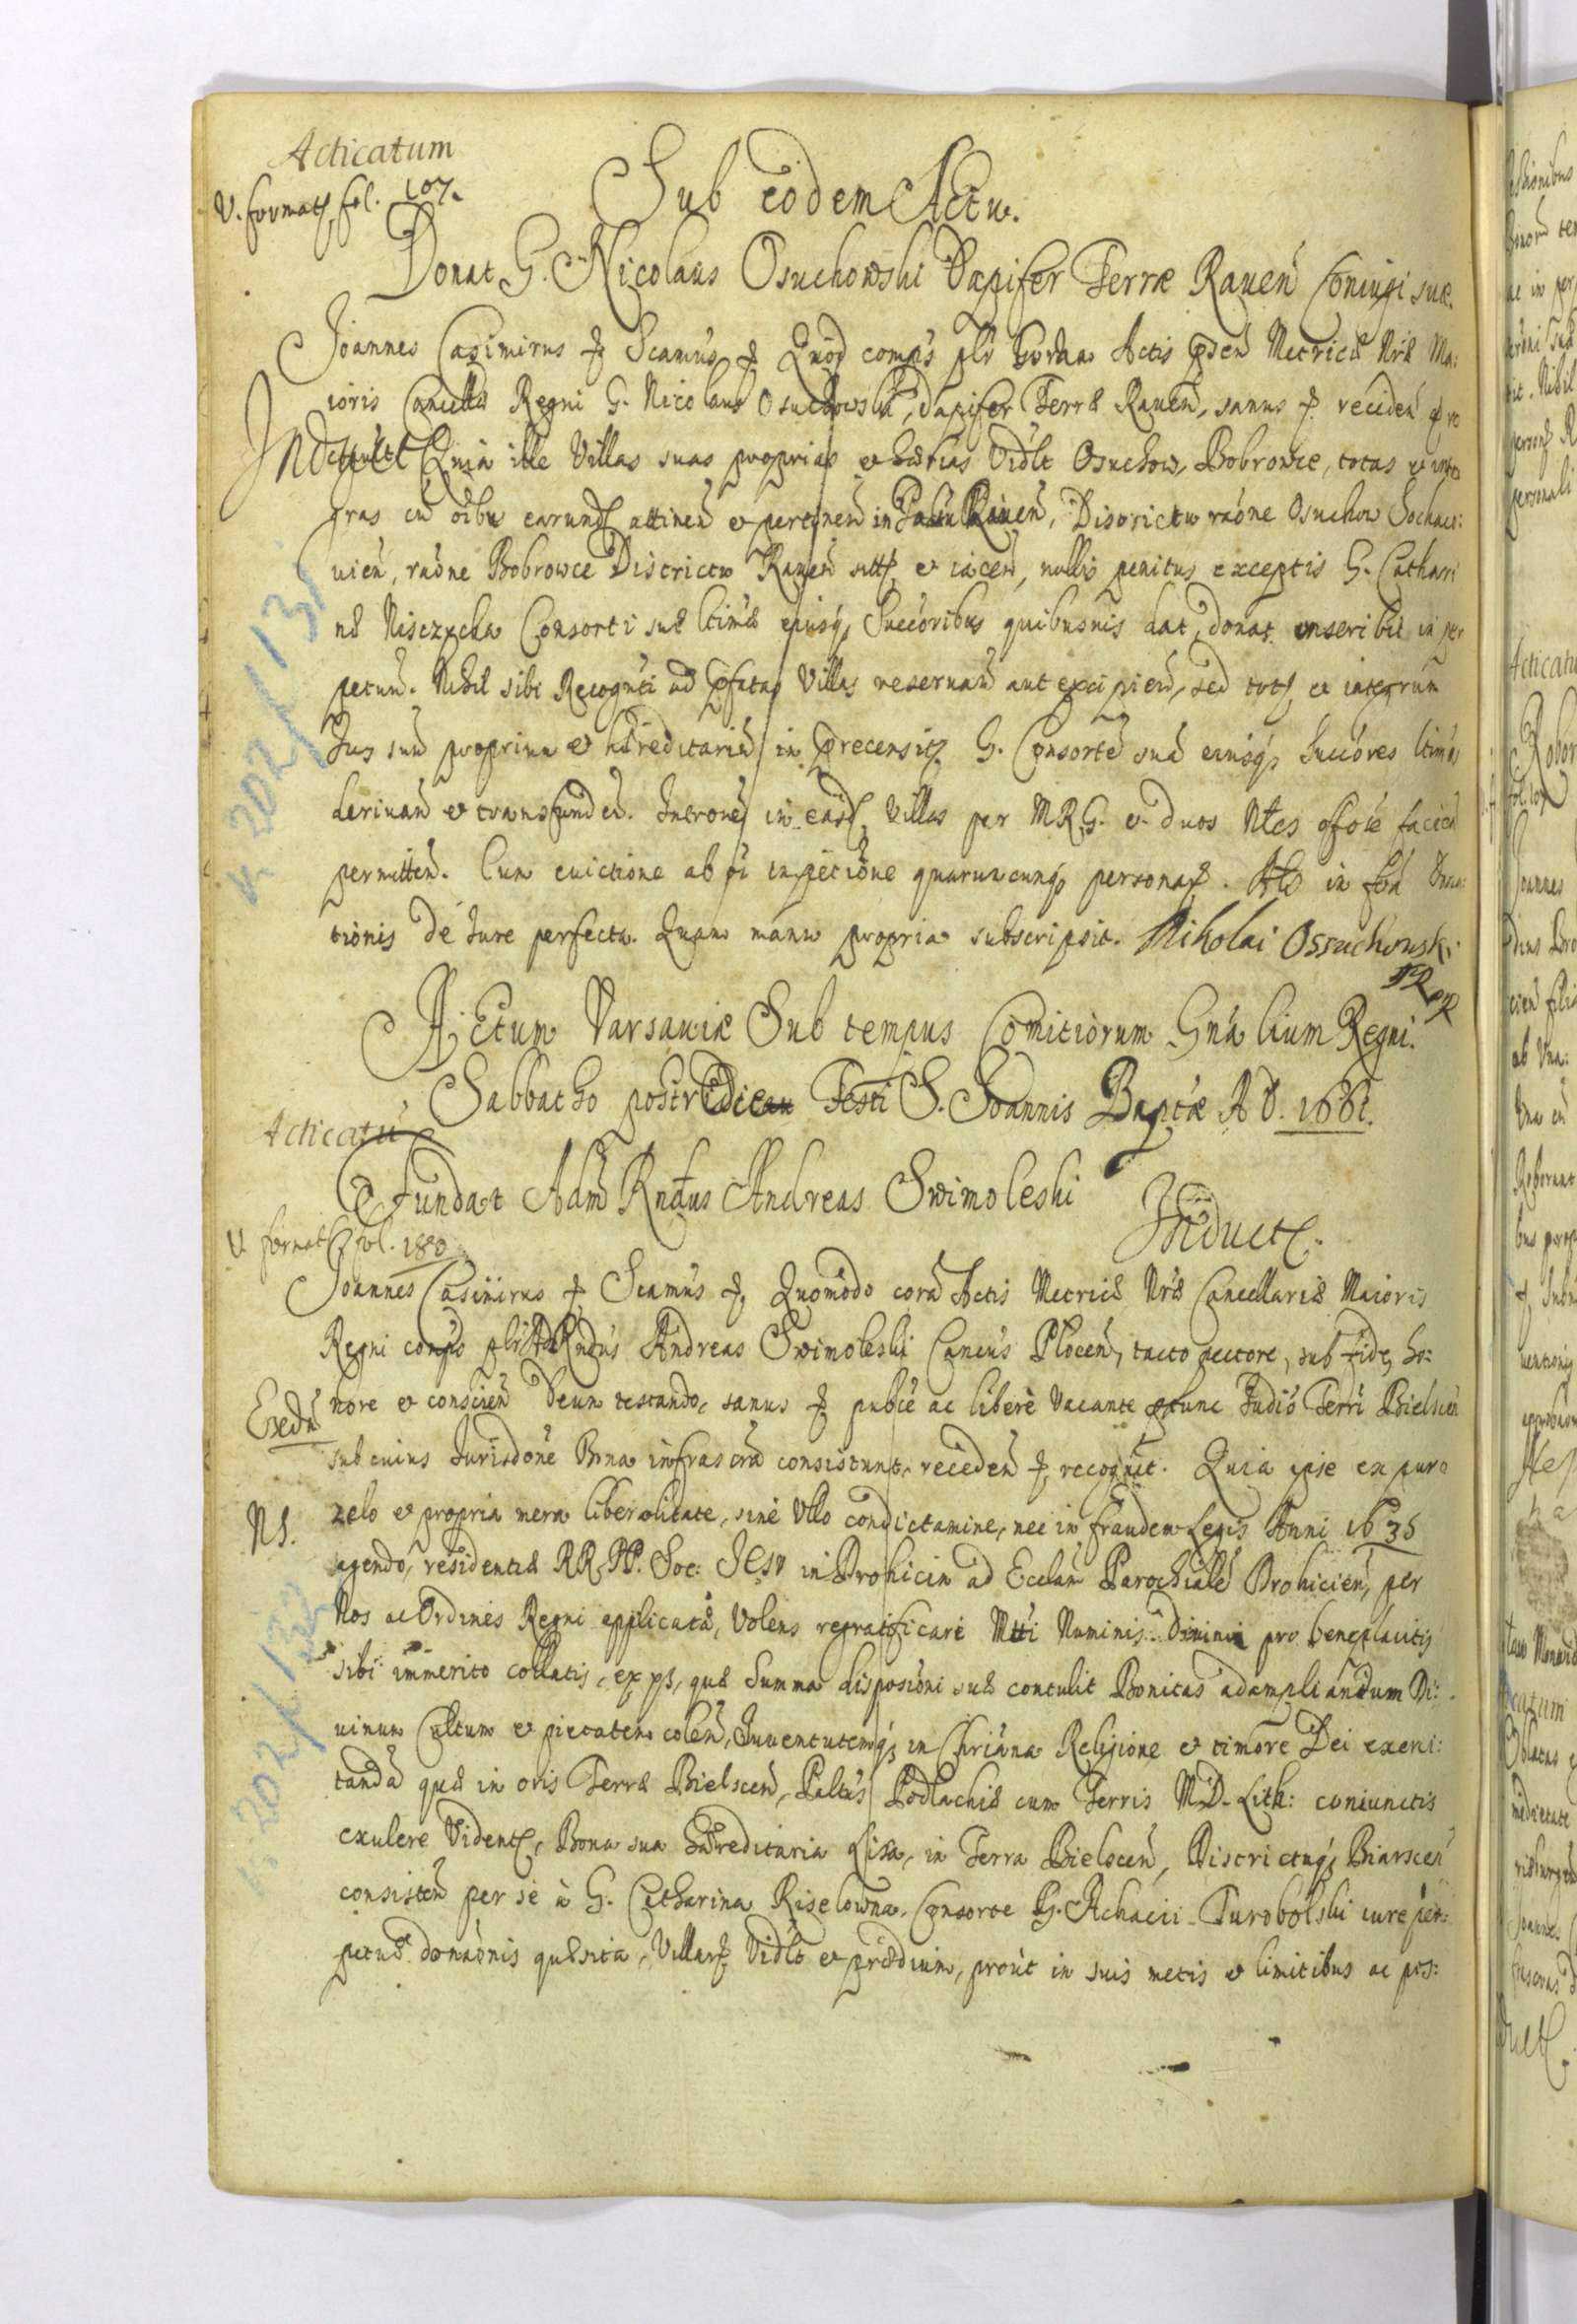 Acticatum
V. format, fol. 107.
Sub eodem Actu.
Donat G. Nicolaus Osuchowski Dapifer Terræ Rauen Coniugi suæ.
Joannes Casimirus Scamus Quod compns plr coram Actis Metrices Nræ Ma:
ioris Cancell Regni G. Nicolaus Osuchowski, Dapifer Terræ Rauen, sanus reciden
Induct Quia ille Villas suas proprias et hærias Vidlt Osuchow, Bobrowce, totas et inte
gras cu oibu earund attinen et pertinen in Paltu Rauen, Districtu raone Osuchow Sochac:
uien, raone Bobrowce Districtu Rauen sitt, et iacen, nullis penitus exceptis G. Cathari
næ Nisczycka Consorti suæ ltimæ eiusq, Succoribus quibusuis dat, donat inscribit in per
petuu. Nihil sibi Recognti ad pfatas Villas reseruan aut excipien, sed tot, et integrum
Jus suu proprium et hæreditariu in precensit, G. Consorte sua eiusq, Succores ltimos
deriuan et transfunden. Introne in easd, Villas per MRG. et duos Ntes offoie facien
permitten. Cum euictione ab oi impetitione quarumcunq, personar. in
tionis de Jure perfecta. Quam manu propria subscripsit. Mikolai Ossuchowski
Actum Varsauiæ Sub tempus Comitiorum Gnalium Regni.
Sabbatho postridie Festi S. Joannis Baptæ A D. 1661.
Acticatu
Fundat Adm Rndus Andreas Swimoleski
Induct.
V format fol. 180
Joannes Casimirus Scamus Quomodo cora Actis Metrices Nræ Cancellariæ Maioris
Regni compns plr Adm Rndus Andreas Swimoleski Cancus Plocen, tacto pectore, sub fide, ho:
nore et conscien Deum testando, sanus publice ac libere Vacante ptunc Judio Terri Bielscen
Exedn
sub cuius Jurisdone Bona infrascra consistunt, receden recognit. Quia ipse ex puro
NS.
zelo et propria mera liberalitate, sine Ullo condictamine, nec in fraudem Legis Anni 1635
agendo, residentiæ RR. PP. Soc: Jesu in Drohicin ad Ecclam Parochiale Drohicien, per
Nos ac Ordines Regni applicata, Volens regratificare Mtti Numinis Diuini pro beneplacitis
sibi immerito collatis, ex ys, quæ Summa disposioni suæ contulit Bonitas ad ampliandum Di:
uinum Cultum et pietatem colen, Juuentutemq, in Chriana Religione et timore Dei exerci:
tanda quæ in oris Terræ Bielscen, Paltus Podlachiæ cum Terris M.D. Lith: coniunctis
exulere Vident, Bona sua hæreditaria Lisa, in Terra Bielscen, Districtuq, Branscen
consisten per se a G. Catharina Kiselowna, Consorte G. Achacii Turobolski iure per:
petuæ donaonis quæsita, Villar Vidlt et prædium, prout in suis metis et limitibus ac pos:
K. 202/131
K. 202/132